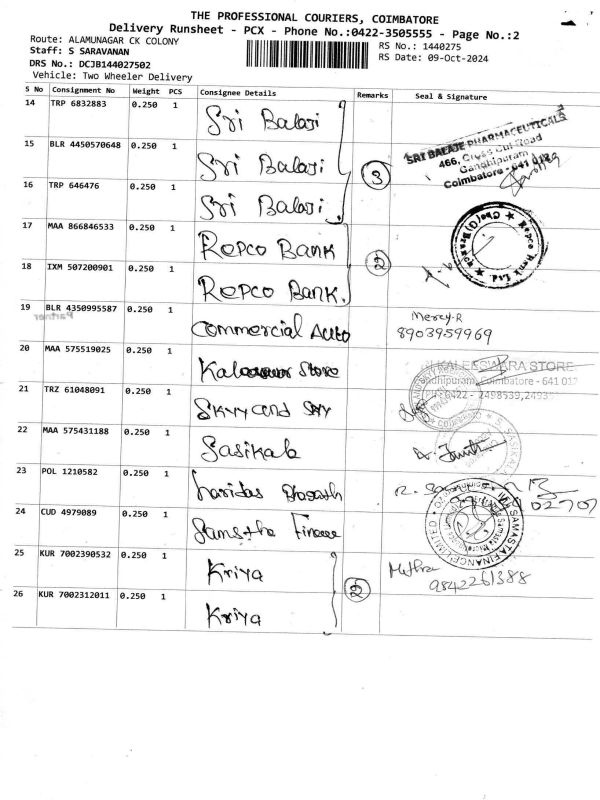 THE PROFESSIONAL COURIERS, COIMBATORE
Delivery Runsheet - PCX - Phone No.:0422-3505555 - Page No.:2
Route: ALAMUNAGAR CK COLONY
RS No.: 1440275
Staff: S SARAVANAN
RS Date: 09-Oct-2024
DRS No.: DCJB144027502
Vehicle: Two Wheeler Delivery
S No Consignment No Weight PCS Consignee Details Remarks Seal & Signature
14 TRP 6832883 0.250 1 Sri Balaji
15 BLR 4450570648 0.250 1 Sri Balaji
SRI BALAJE PHARMACEUTICALS
466, Cross Cut Road
Gandhipuram
Coimbatore - 641 012
3
16 TRP 646476 0.250 1 Sri Balaji
17 MAA 866846533 0.250 1 Repco Bank
2
Repco Bank Ltd.
18 IXM 507200901 0.250 1 Repco Bank
19 BLR 4350995587 0.250 1 Commercial Auto
Partner
Mercy.R
8903959969
20 MAA 575519025 0.250 1 Store
KALEESWARA STORE
Gandhipuram, Coimbatore - 641 012
0422 - 2498539, 2493
21 TRZ 61048091 0.250 1
22 MAA 575431188 0.250 1 Sasikala
23 POL 1210582 0.250 1 haridas
24 CUD 4979089 0.250 1 Samstha Finance
SAMASTA FINANCE LIMITED
25 KUR 7002390532 0.250 1 Kriya
Mithra
9842261388
2
26 KUR 7002312011 0.250 1 Kriya